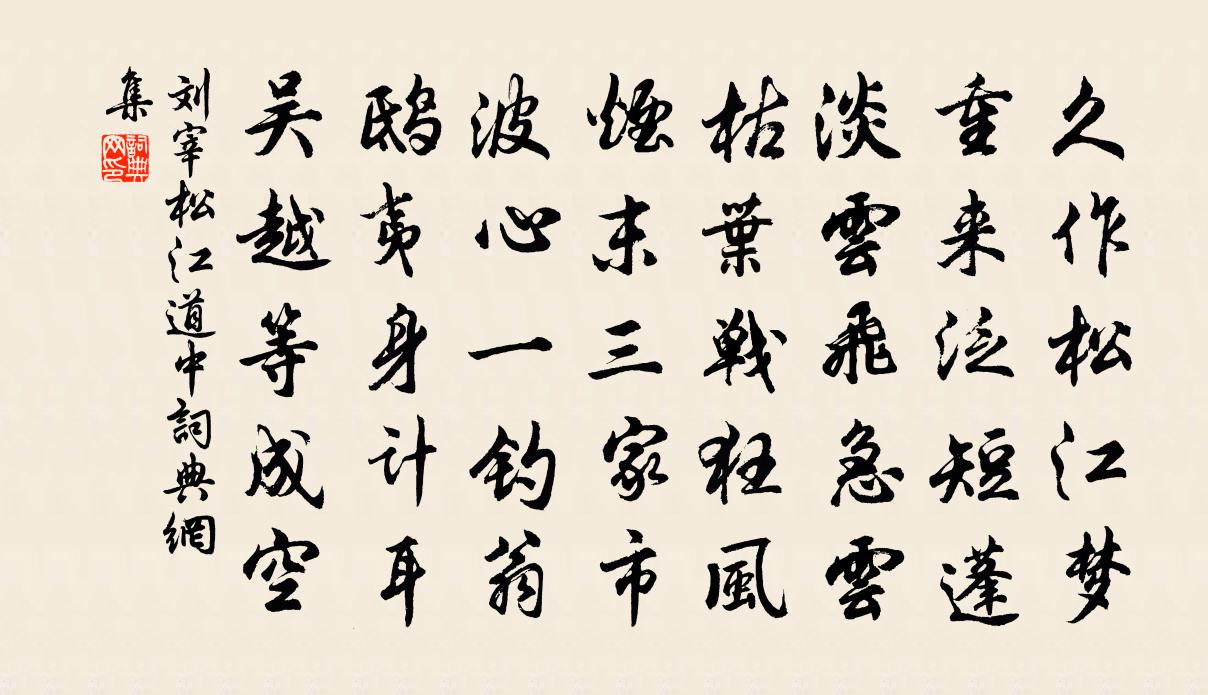 久作松江梦
重来泛短蓬
淡雲飛急雲
枯葉戦狂風
煙末三家市
波心一釣翁
鴟夷身计耳
吴越等成空
刘宰松江道中詞典網
集
詞典網印